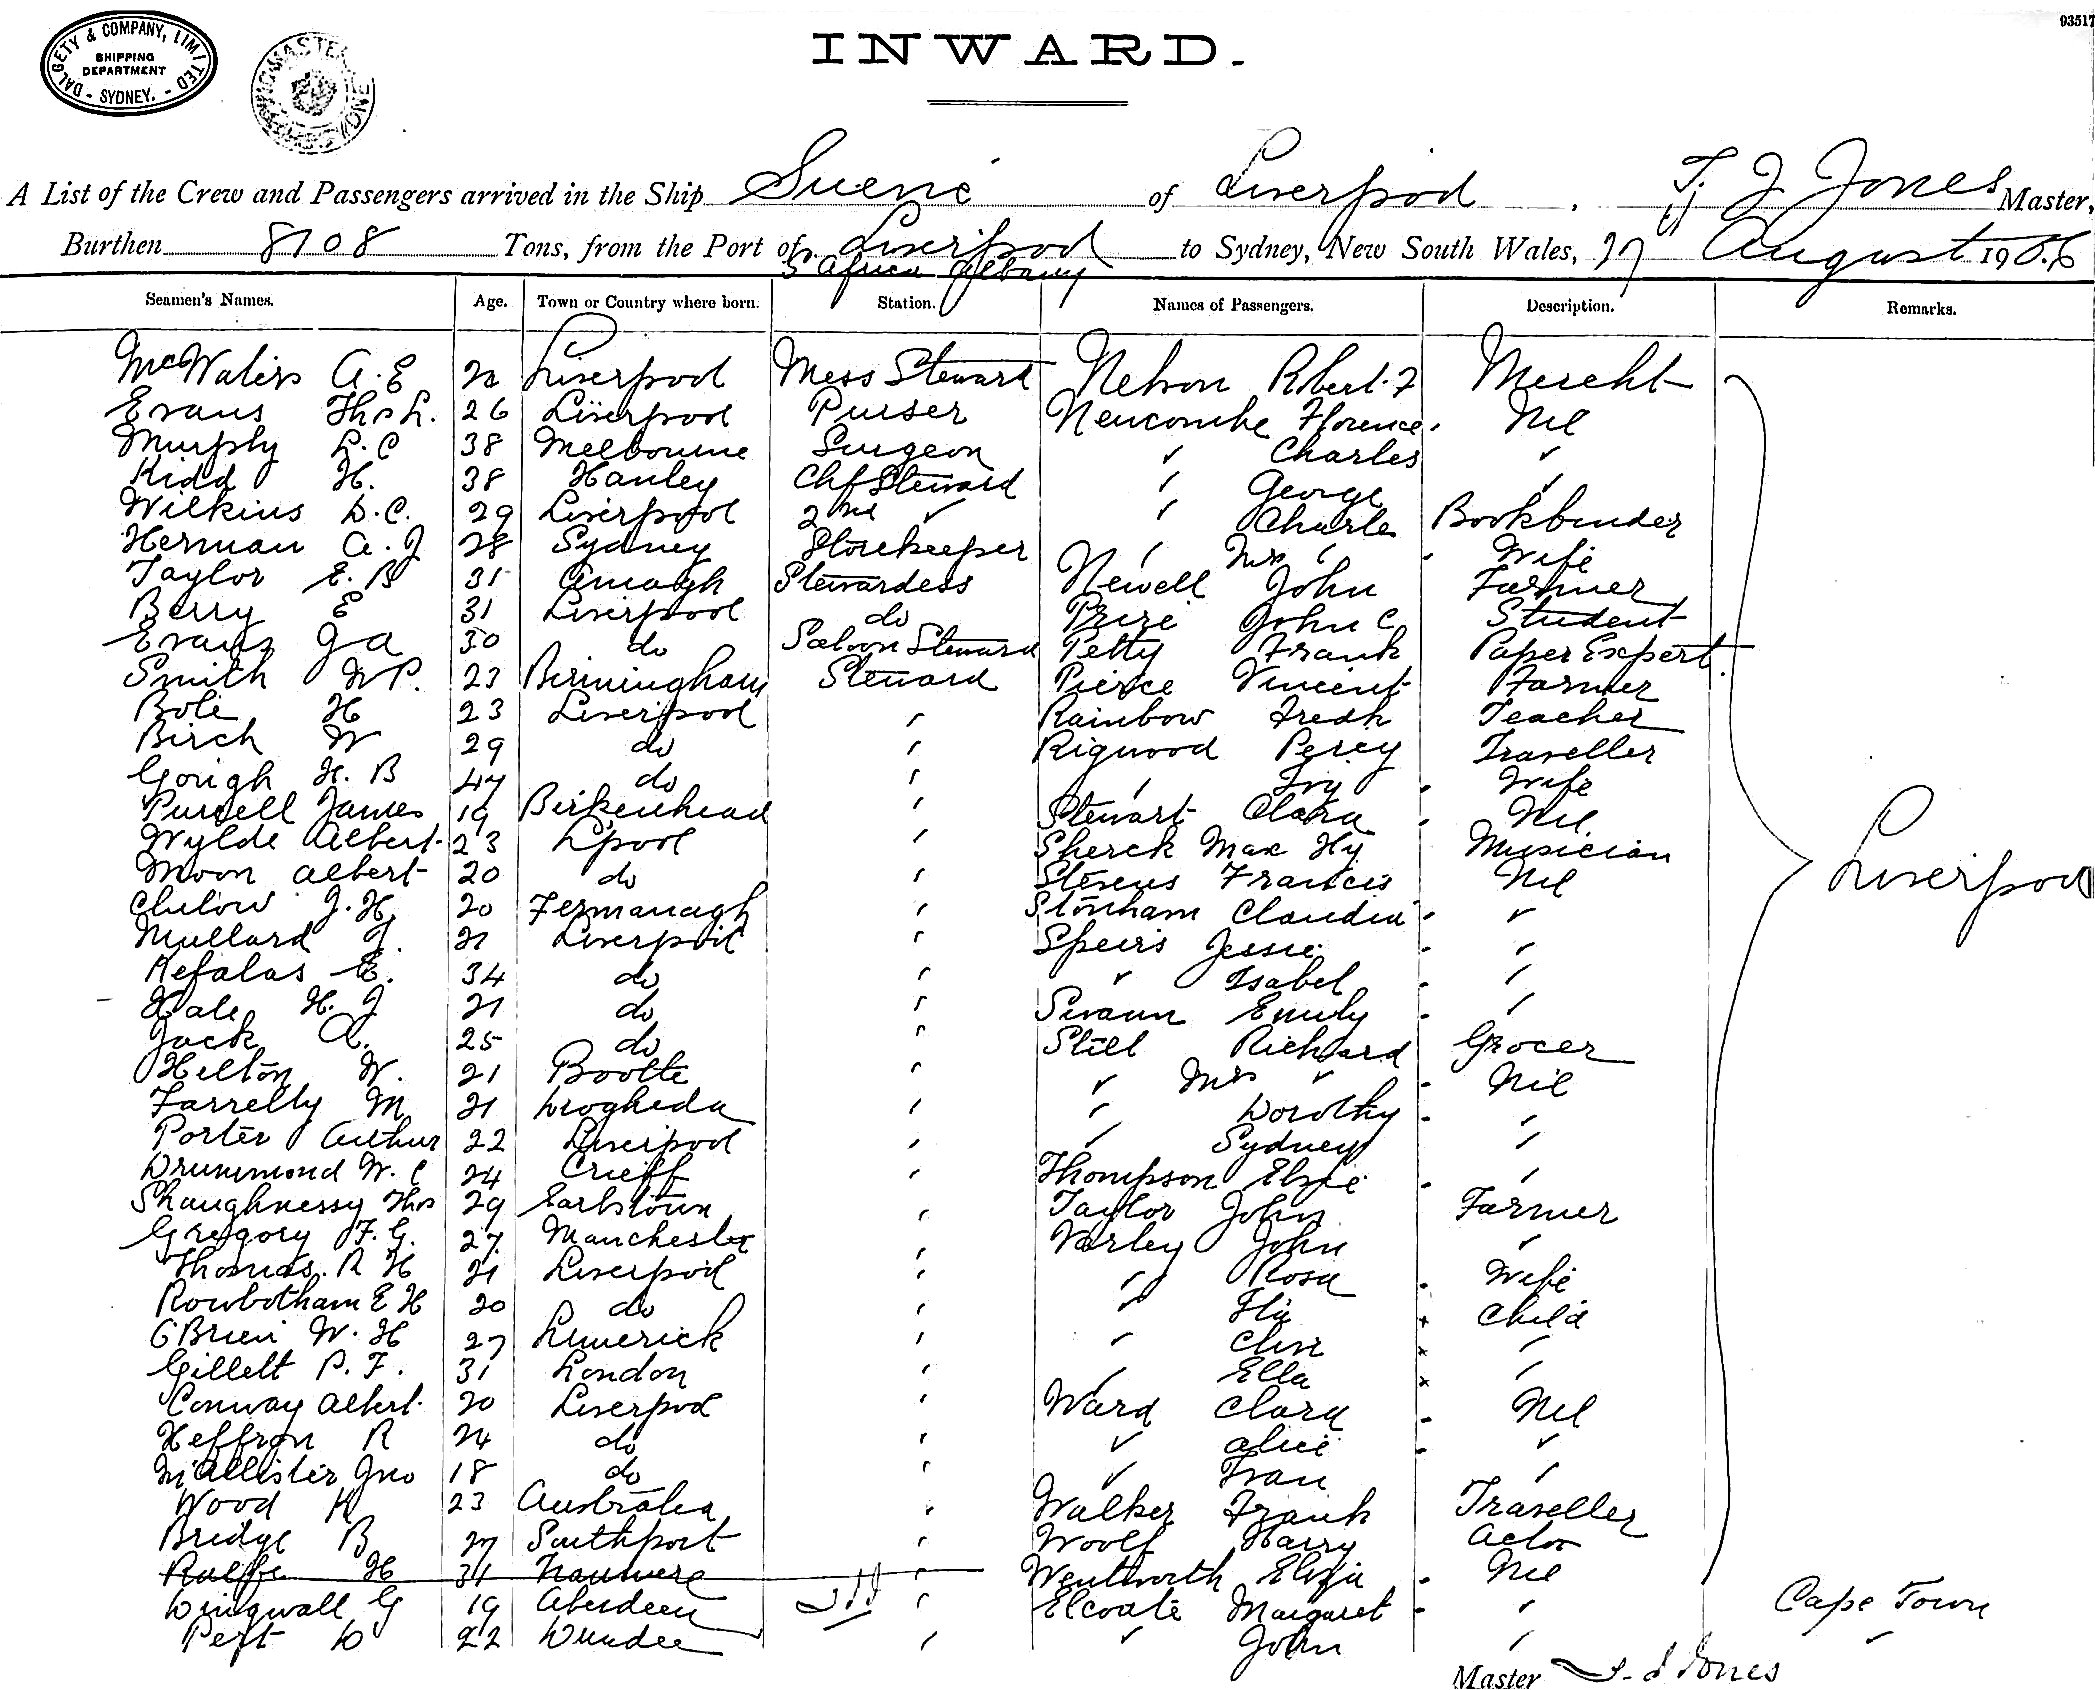 03517
DALGETY & COMPANY, LIMITED
SHIPPING
DEPARTMENT
- SYDNEY. -
INWARD.
A List of the Crew and Passengers arrived in the Ship Suevic of Liverpool, T J Jones Master,
Burthen 8108 Tons, from the Port of Liverpool to Sydney, New South Wales, 27 August 1906
S Africa Albany
Seamen's Names. Age. Town or Country where born. Station. Names of Passengers. Description. Remarks.
McWaters A.E Liverpool Mess Steward Nelson Robert. Mercht
Evans Thos L. 26 Liverpool Purser Newcombe Florence. Nil
Murphy L.C 38 Melbourne Surgeon " Charles "
Kidd H. 38 Hanley Chf Steward " George "
Wilkins D.C. 29 Liverpool 2nd " " Charle Bookbinder
Herman A.J 28 Sydney Storekeeper " Mrs " Wife
Taylor E.B 31 Armagh Stewardess Newell John Farmer
Berry E 31 Liverpool do John C Student
Evans J A 30 do Saloon Steward Petty Frank Paper Expert
Smith W P. 23 Birmingham Steward Pierce Vincent Farmer
H 23 Liverpool " Rainbow Fredk Teacher
Birch W 29 do " Rigwood Percy Traveller
Gough H. B 47 do " " Ivy Wife
Pursell James 19 Birkenhead " Stewart Clara Nil.
Wylde Albert. 23 L'pool " Sherek Max Hy Musician
Moon Albert 20 do " Stevens Francis Nil
J.H. 20 Fermanagh " Stonham Claudia "
Mullard J. 21 Liverpool " Speirs Jessie "
Kefalas E. 34 do " " Isabel "
Hale H. J 21 do " Swann Emily "
Jack A. 25 do " Still Richard Grocer
Hilton W. 21 Bootle " " Mrs " Nil
Farrelly M 21 Drogheda " " Dorothy "
Porter Arthur 22 Liverpool " " Sydney "
Drummond W. C 24 Crieff " Thompson Elsie "
Shaughnessy Thos 29 Earlstown Taylor John Farmer
Gregory F.G. 27 Manchester " Varley John "
Thomas R H 21 Liverpool " " Rosa Wife
Rowbotham E H 20 do " " Child
O'Brien W. H 27 Limerick " " Clive "
Gillett P. F. 31 London " " Ella "
Conway Albert. 20 Liverpool " Ward Clara Nil
Heffron R 24 do " " Alice "
McAllister Jno 18 do " " Fran "
Wood H 23 Australia " Walker Frank Traveller
Bridge B 27 Southport " Woolf Harry Actor
Rolffe H 31 " Wentworth Eliza Nil
Dingwall G 19 Aberdeen " Elcoate Margaret "
Pert D 22 Dundee " " John "
Liverpool
Cape Town
"
Master T. J Jones